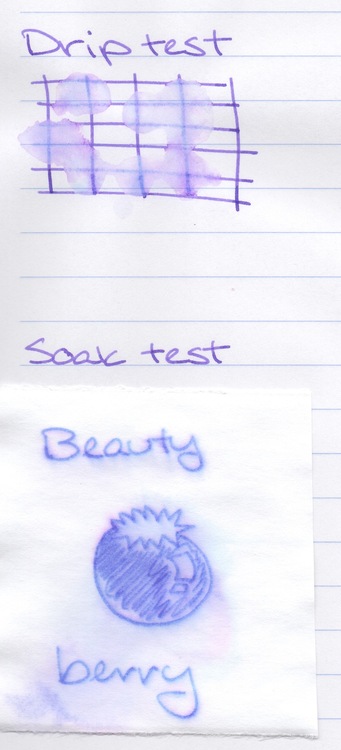 Drip test
Soak test
Beauty
berry